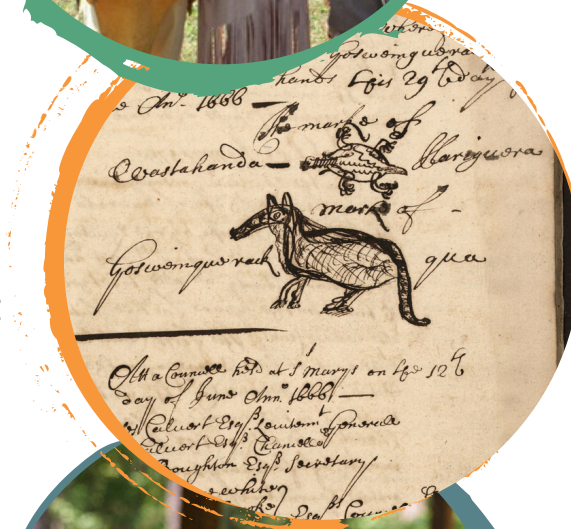 where
Gosweinquera
hands this 29th day
e Ann.o 1666
The marke of
Wastahanda Hariguera
mark of
Gosweinquerack qua
Att a Councell held at St marys on the 12th
day of June Ann.o 1666
Calvert Esqr. Leiutennt Generall
Calvert Esqr. Chancellor
Boughton Esqr. Secretary
white
Esqrs